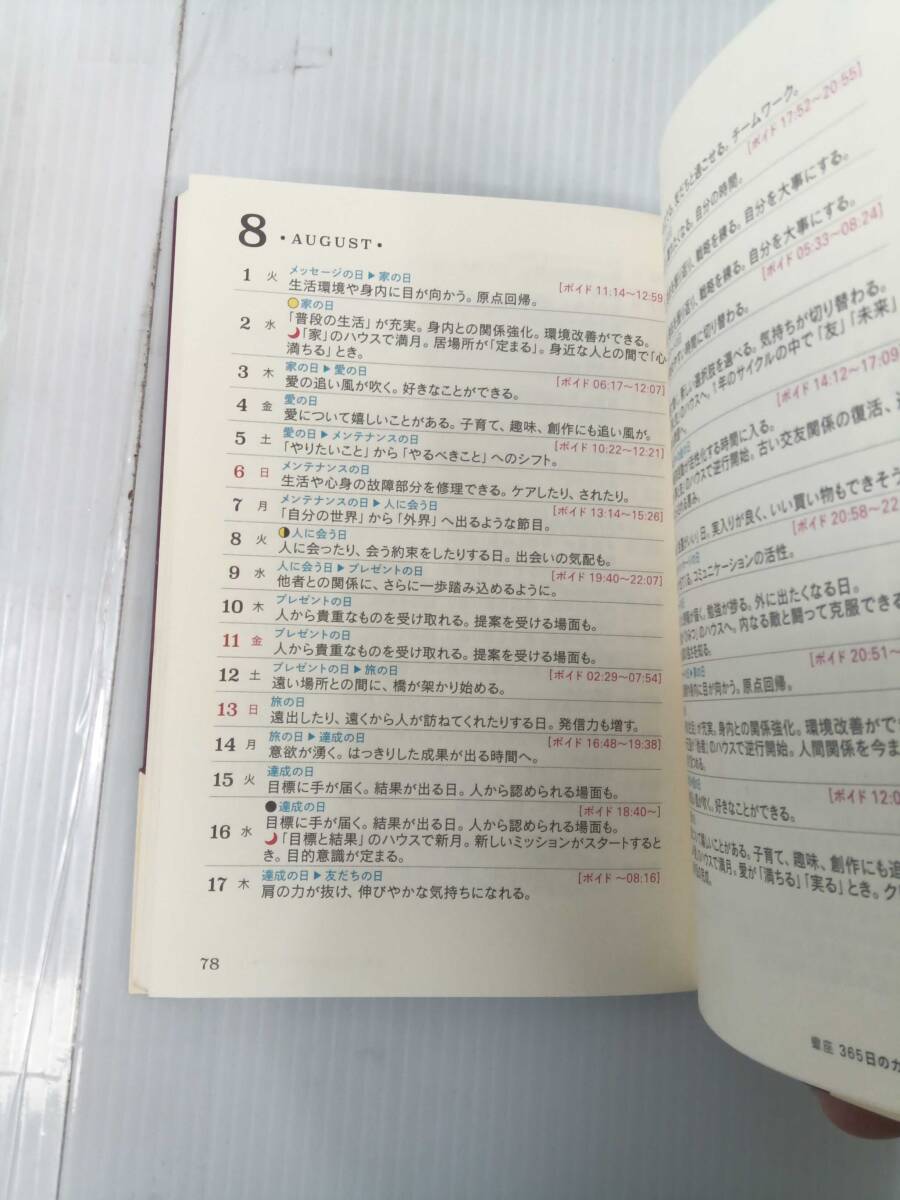 8 ・AUGUST・
1 火 メッセージの日▶家の日
生活環境や身内に目が向かう。原点回帰。 [ボイド 11:14〜12:59
家の日
2 水 「普段の生活」が充実。身内との関係強化。環境改善ができる。
「家」のハウスで満月。居場所が「定まる」。身近な人との間で「心
満ちる」とき。
3 木 家の日▶愛の日
愛の追い風が吹く。好きなことができる。 [ボイド 06:17〜12:07]
4 金 愛の日
愛について嬉しいことがある。子育て、趣味、創作にも追い風が。
5 土 愛の日▶メンテナンスの日
「やりたいこと」から「やるべきこと」へのシフト。 [ボイド 10:22〜12:21]
6 日 メンテナンスの日
生活や心身の故障部分を修理できる。ケアしたり、されたり。
7 月 メンテナンスの日▶人に会う日
「自分の世界」から「外界」へ出るような節目。 [ボイド 13:14〜15:26]
8 火 人に会う日
人に会ったり、会う約束をしたりする日。出会いの気配も。
9 水 人に会う日▶プレゼントの日
他者との関係に、さらに一歩踏み込めるように。 [ボイド 19:40〜22:07]
10 木 プレゼントの日
人から貴重なものを受け取れる。提案を受ける場面も。
11 金 プレゼントの日
人から貴重なものを受け取れる。提案を受ける場面も。
12 土 プレゼントの日▶旅の日
遠い場所との間に、橋が架かり始める。 [ボイド 02:29〜07:54]
13 日 旅の日
遠出したり、遠くから人が訪ねてくれたりする日。発信力も増す。
14 月 旅の日▶達成の日
意欲が湧く。はっきりした成果が出る時間へ。 [ボイド 16:48〜19:38]
15 火 達成の日
目標に手が届く。結果が出る日。人から認められる場面も。
達成の日 [ボイド 18:40〜]
16 水 目標に手が届く。結果が出る日。人から認められる場面も。
「目標と結果」のハウスで新月。新しいミッションがスタートすると
き。目的意識が定まる。
17 木 達成の日▶友だちの日
肩の力が抜け、伸びやかな気持ちになれる。 [ボイド 〜08:16]
78
友だちと過ごせる。チームワーク。
[ボイド 17:52〜20:55]
なる。自分の時間。
戦略を練る。自分を大事にする。
戦略を練る。自分を大事にする。
[ボイド 05:33〜08:24]
時間に切り替わる。
新しい選択肢を選べる。気持ちが切り替わる。
のハウスへ。1年のサイクルの中で「友」「未来」
[ボイド 14:12〜17:09]
活性化する時間に入る。
のハウスで逆行開始。古い交友関係の復活、
日。実入りが良く、いい買い物もできそう
[ボイド 20:58〜22
コミュニケーションの活性。
勉強が捗る。外に出たくなる日。
のハウスへ。内なる敵と闘って克服できる
[ボイド 20:51〜
身内に目が向かう。原点回帰。
が充実。身内との関係強化。環境改善がで
のハウスで逆行開始。人間関係を今ま
吹く。好きなことができる。
[ボイド 12:0
ことがある。子育て、趣味、創作にも追
のハウスで満月。愛が「満ちる」「実る」とき。ク
蠍座 365日のカ